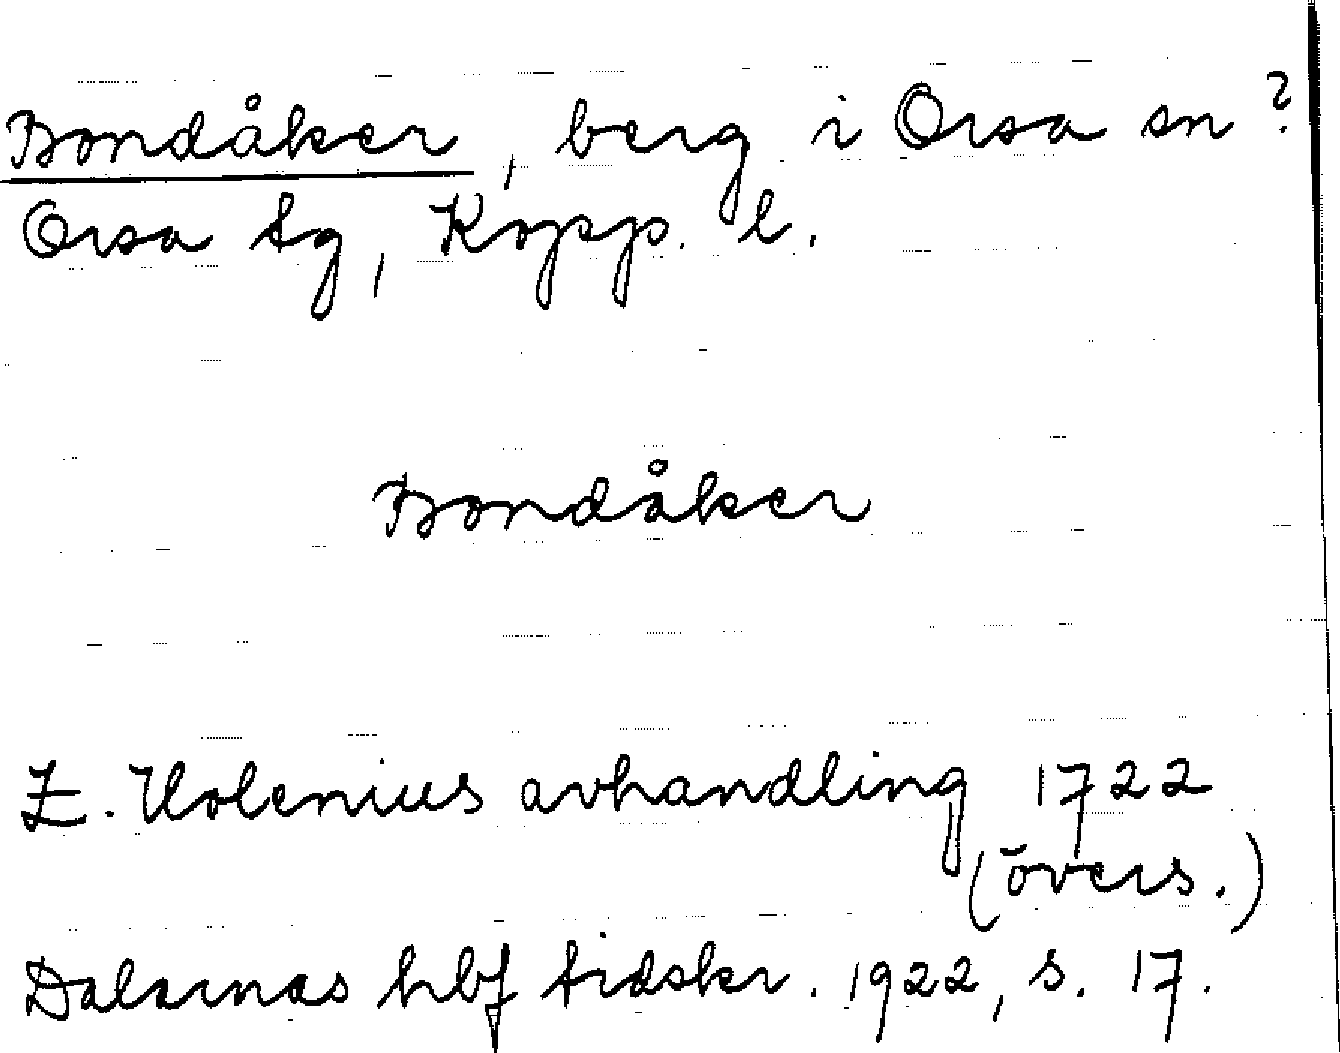 Bondåker, berg i Orsa sn?
Orsa tg, Kopp. l.
Bondåker
Z. Holenius avhandling 1722
(övers.)
Dalarnas hbf tidskr. 1922, s. 17.